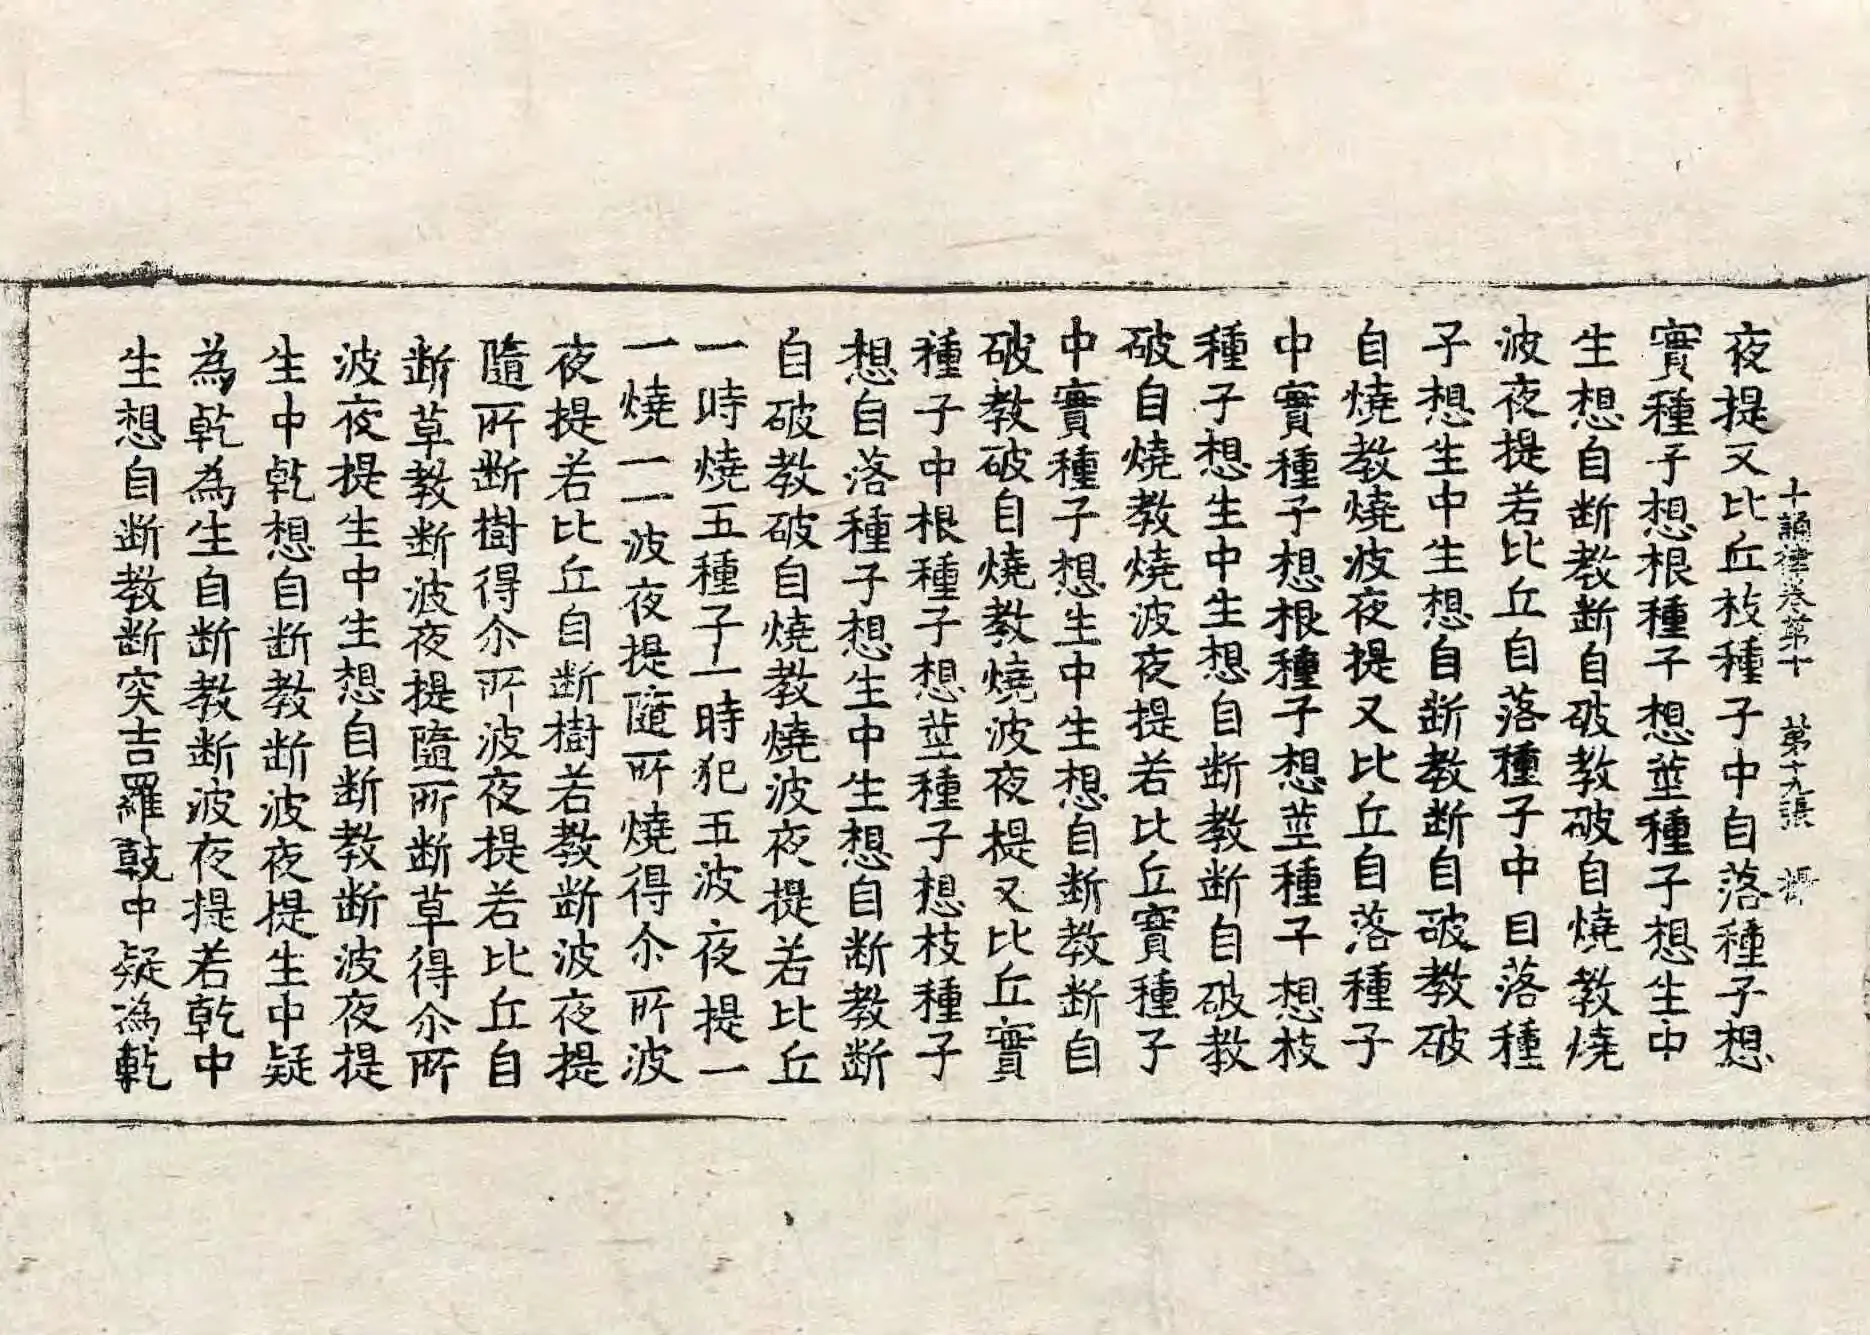 十誦律卷第十　第十九張
夜提又比丘枝種子中自落種子想
實種子想根種子想莖種子想生中
生想自断教断自破教破自燒教燒
波夜提若比丘自落種子中自落種
子想生中生想自断教断自破教破
自燒教燒波夜提又比丘自落種子
中實種子想根種子想莖種子想枝
種子想生中生想自断教断自破教
破自燒教燒波夜提若比丘實種子
中實種子想生中生想自断教断自
破教破自燒教燒波夜提又比丘實
種子中根種子想莖種子想枝種子
想自落種子想生中生想自断教断
自破教破自燒教燒波夜提若比丘
一時燒五種子一時犯五波夜提一
一燒一一波夜提隨所燒得尒所波
夜提若比丘自断樹若教断波夜提
隨所断樹得尒所波夜提若比丘自
断草教断波夜提隨所断草得尒所
波夜提生中生想自断教断波夜提
生中乾想自断教断波夜提生中疑
為乾為生自断教断波夜提若乾中
生想自断教断突吉羅乾中疑為乾